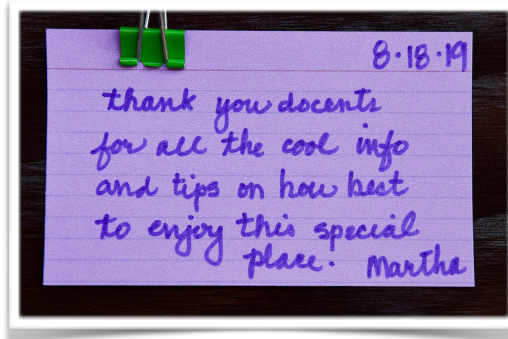 8·18·19
thank you docents
for all the cool info
and tips on how best
to enjoy this special
place. Martha